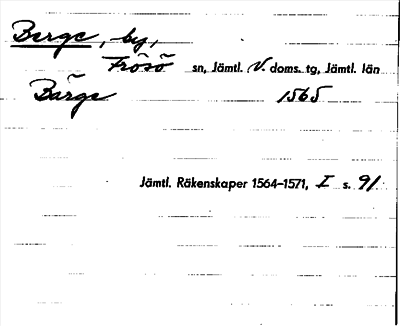 Berge, by,
Frösö sn, Jämtl. V. doms. tg, Jämtl. län
Bärge 1565
Jämtl. Räkenskaper 1564–1571, I s. 91